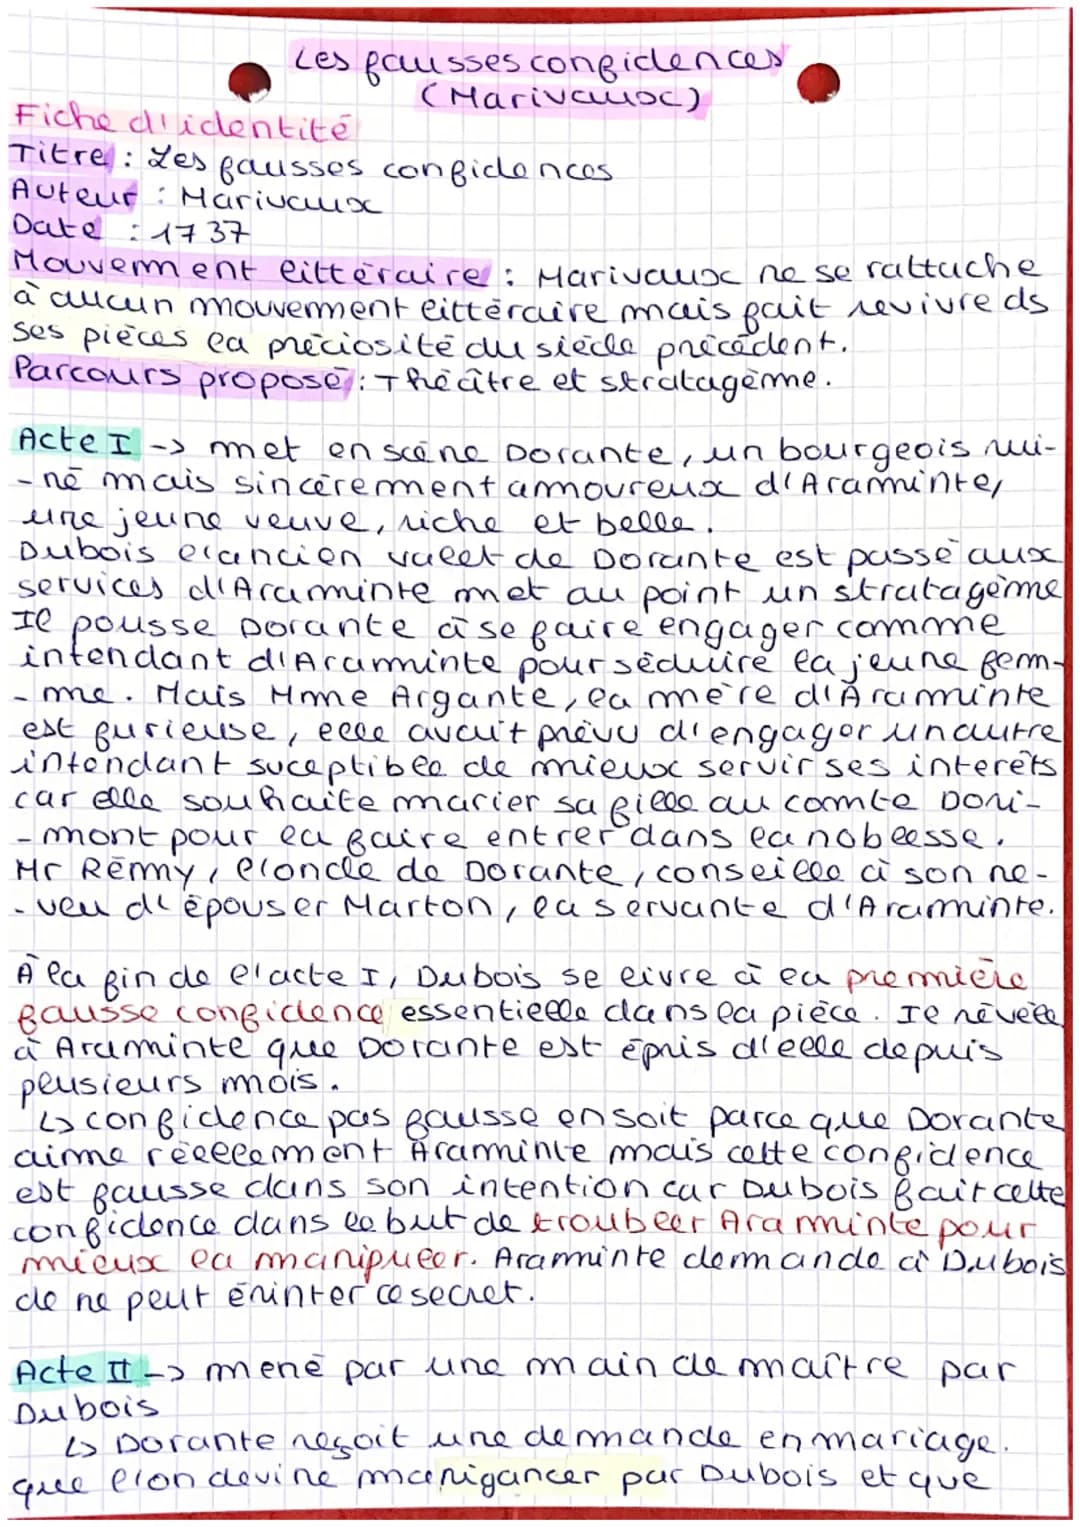 Les fausses confidences
(Marivaux)
Fiche d'identité
Titre : Les fausses confidences
Auteur : Marivaux
Date : 1737
Mouvement littéraire : Marivaux ne se rattache
à aucun mouvement littéraire mais fait revivre ds
ses pièces la préciosité du siècle précédent.
Parcours proposé : Théâtre et stratagème.
Acte I -> met en scène Dorante, un bourgeois rui-
-né mais sincèrement amoureux d'Araminte,
une jeune veuve, riche et belle.
Dubois l'ancien valet de Dorante est passé aux
services d'Araminte met au point un stratagème
Il pousse Dorante à se faire engager comme
intendant d'Araminte pour séduire la jeune fem-
-me. Mais Mme Argante, la mère d'Araminte
est furieuse, elle avait prévu d'engager un autre
intendant suceptible de mieux servir ses interêts
car elle souhaite marier sa fille au comte Dori-
-mont pour la faire entrer dans la noblesse.
Mr Rémy, l'oncle de Dorante, conseille à son ne-
-veu d'épouser Marton, la servante d'Araminte.
À la fin de l'acte I, Dubois se livre à la première
fausse confidence essentielle dans la pièce. Il révèle
à Araminte que Dorante est épris d'elle depuis
plusieurs mois.
↳ confidence pas fausse en soit parce que Dorante
aime réellement Araminte mais cette confidence
est fausse dans son intention car Dubois fait cette
confidence dans le but de troubler Araminte pour
mieux la manipuler. Araminte demande à Dubois
de ne peut érinter ce secret.
Acte II -> mené par une main de maître par
Dubois
↳ Dorante reçoit une demande en mariage.
que l'on devine manigancer par Dubois et que